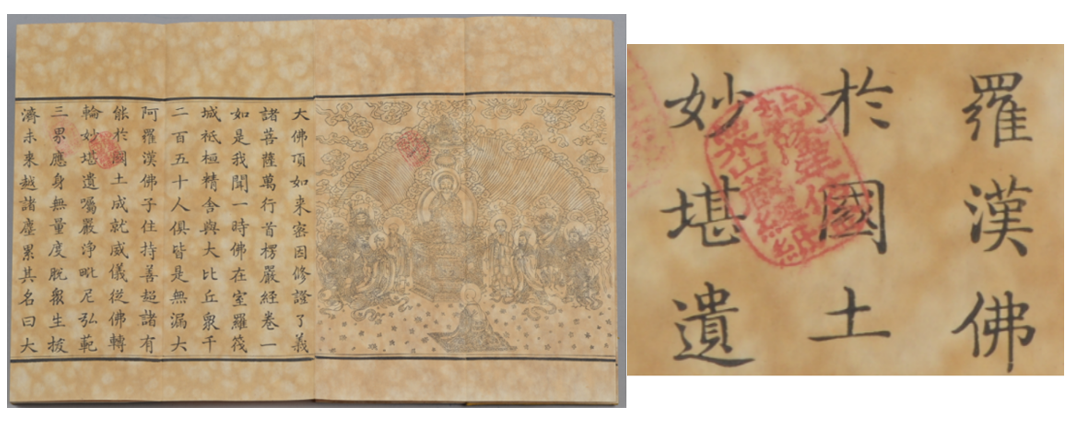 大佛頂如來密因修證了義
諸菩薩萬行首楞嚴經卷一
如是我聞一時佛在室羅筏
城祇桓精舍與大比丘衆千
二百五十人俱皆是無漏大
阿羅漢佛子住持善超諸有
能於國土成就威儀從佛轉
輪妙堪遺囑嚴淨毗尼弘範
三界應身無量度脫衆生拔
濟未來越諸塵累其名曰大
羅漢佛
於國土
妙堪遺
乾隆年仿
金粟山藏經紙